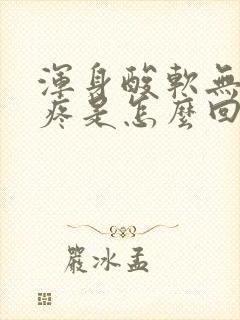 渾身酸軟無
疼是怎麼回
嚴冰孟